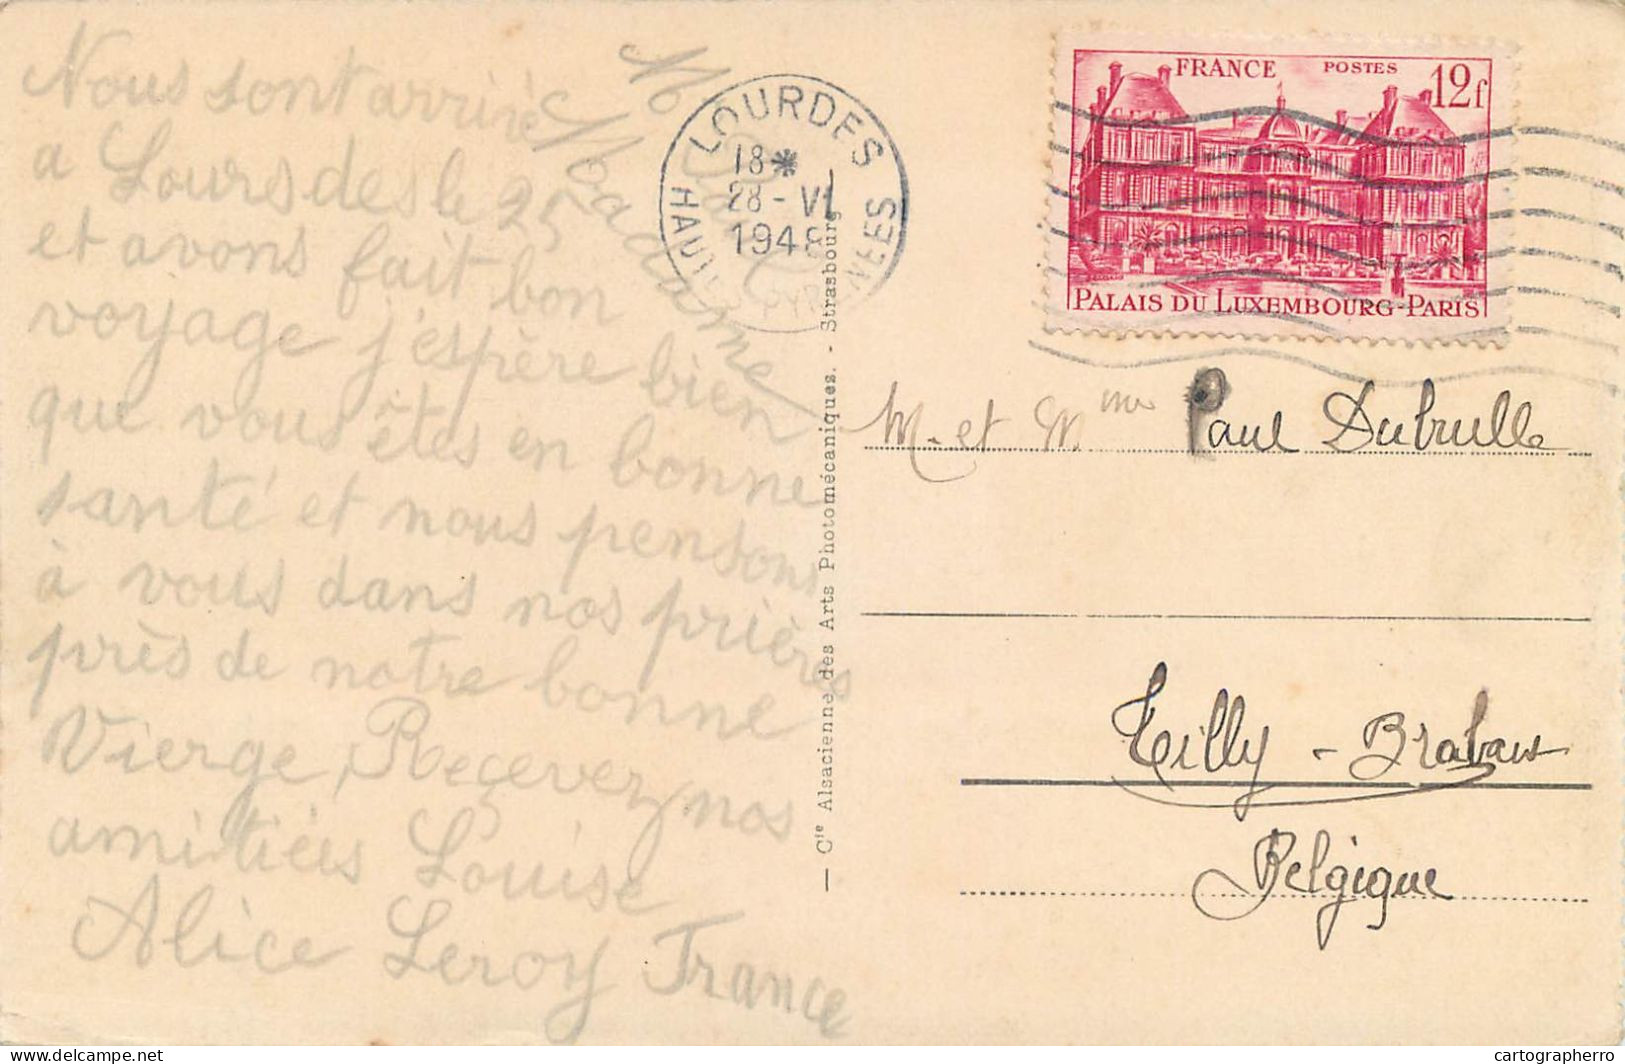 M
Madame
Nous sont arrivé
a Loursdes le 25
et avons fait bon
voyage j'espère bien
que vous êtes en bonne
santé et nous pensons
à vous dans nos prières
près de notre bonne
Vierge, Reçevez nos
amitiées Louise
Alice Leroy France
LOURDES
18*
28-VI
1948
HAUTES PYRENEES
FRANCE POSTES 12f
PALAIS DU LUXEMBOURG-PARIS
— Cie Alsacienne des Arts Photomécaniques. - Strasbourg
M. et Mme Paul Dubrulle
Tilly - Brabant
Belgique
delcampe.net
cartographerro